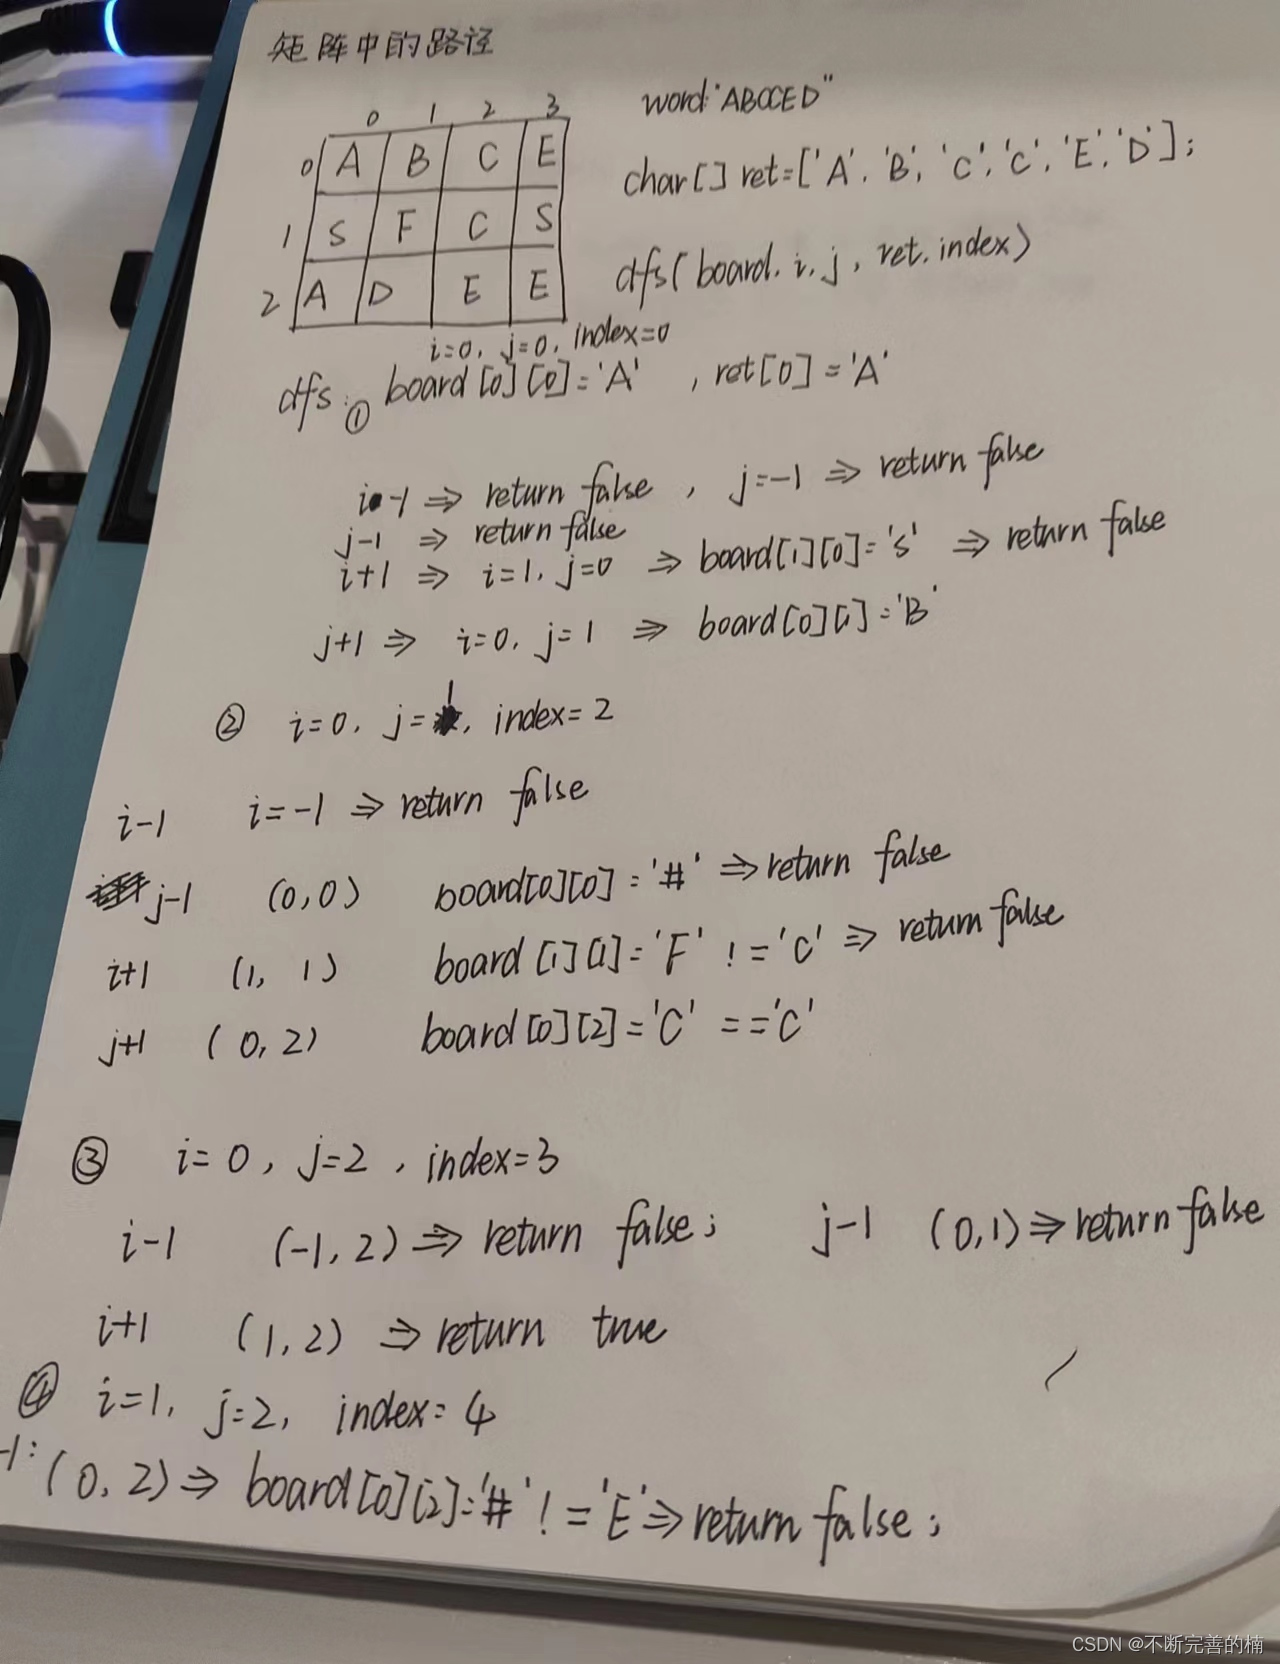 矩阵中的路径
word:"ABCCED"
0 1 2 3
0 A B C E
char[] ret=['A','B','C','C','E','D'];
1 S F C S
dfs(board,i,j,ret,index)
2 A D E E
i=0, j=0, index=0
dfs: ① board[0][0]='A' , ret[0]='A'
i-1 ⇒ return false , j=-1 ⇒ return false
j-1 ⇒ return false
i+1 ⇒ i=1, j=0 ⇒ board[1][0]='S' ⇒ return false
j+1 ⇒ i=0, j=1 ⇒ board[0][1]='B'
② i=0, j=1, index=2
i-1 i=-1 ⇒ return false
j-1 (0,0) board[0][0]='#' ⇒ return false
i+1 (1, 1) board[1][1]='F' !='C' ⇒ return false
j+1 (0,2) board[0][2]='C' =='C'
③ i=0, j=2, index=3
i-1 (-1,2) ⇒ return false; j-1 (0,1) ⇒ return false
i+1 (1,2) ⇒ return true
④ i=1, j=2, index=4
-1: (0,2) ⇒ board[0][2]='#' !='E' ⇒ return false;
CSDN @不断完善的楠